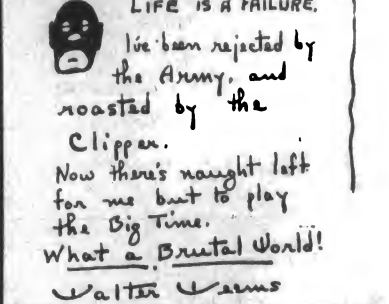 LIFE IS A FAILURE.
I've been rejected by
the Army, and
roasted by the
Clipper.
Now there's naught left
for me but to play
the Big Time.
What a Brutal World!
Walter Weems